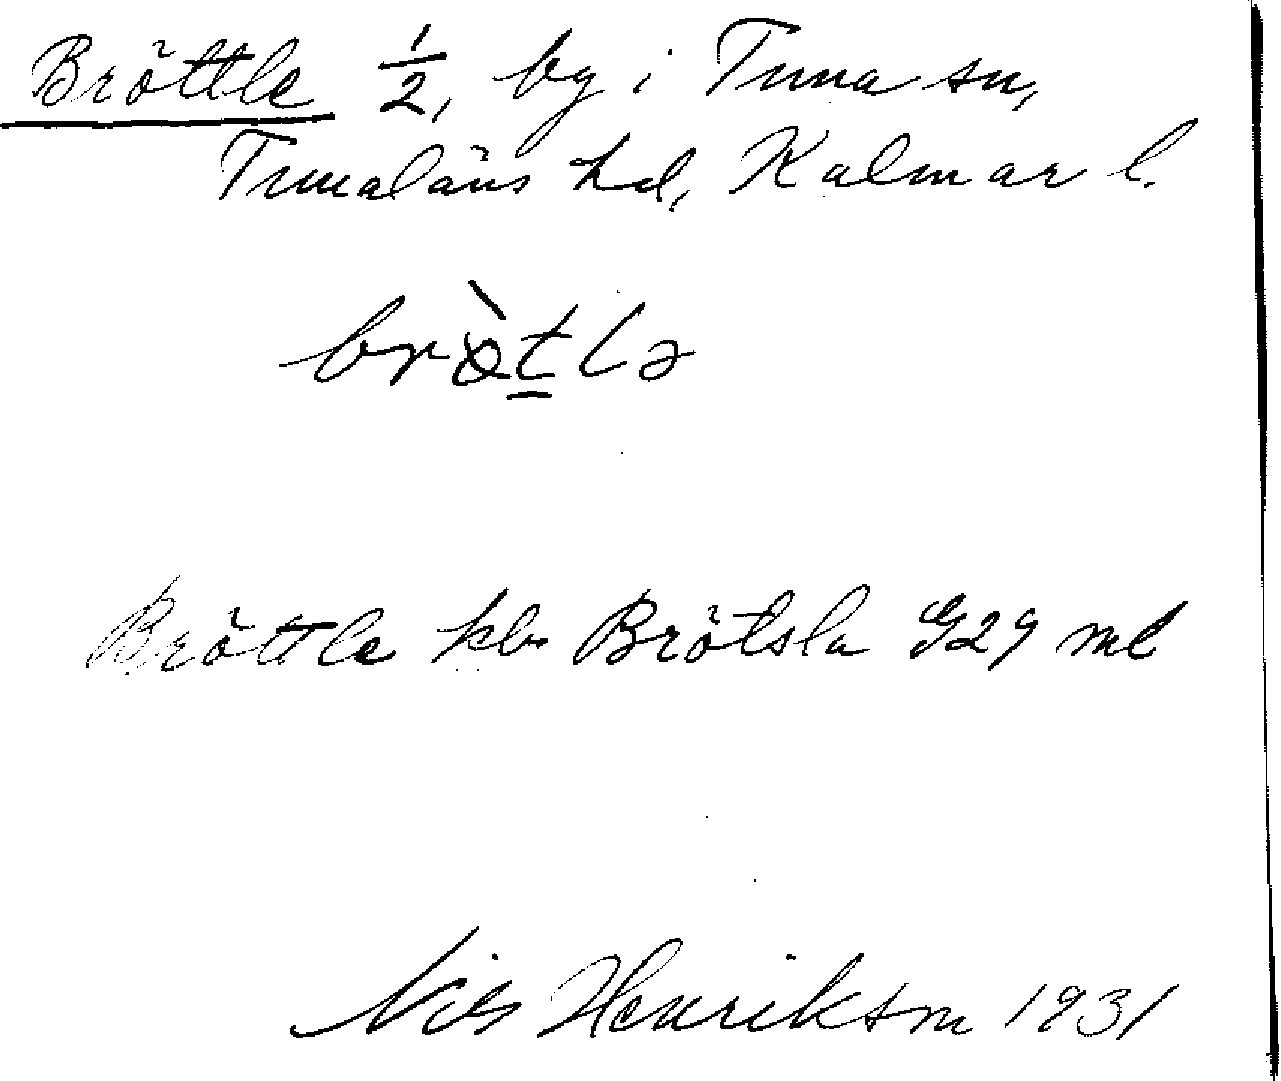 Bröttle 1/2, by i Tuna sn,
Tunaläns hd, Kalmar l.
brö̀t̲lə
Bröttle kbr Brötsla G29 ml
Nils Henrikson 1931